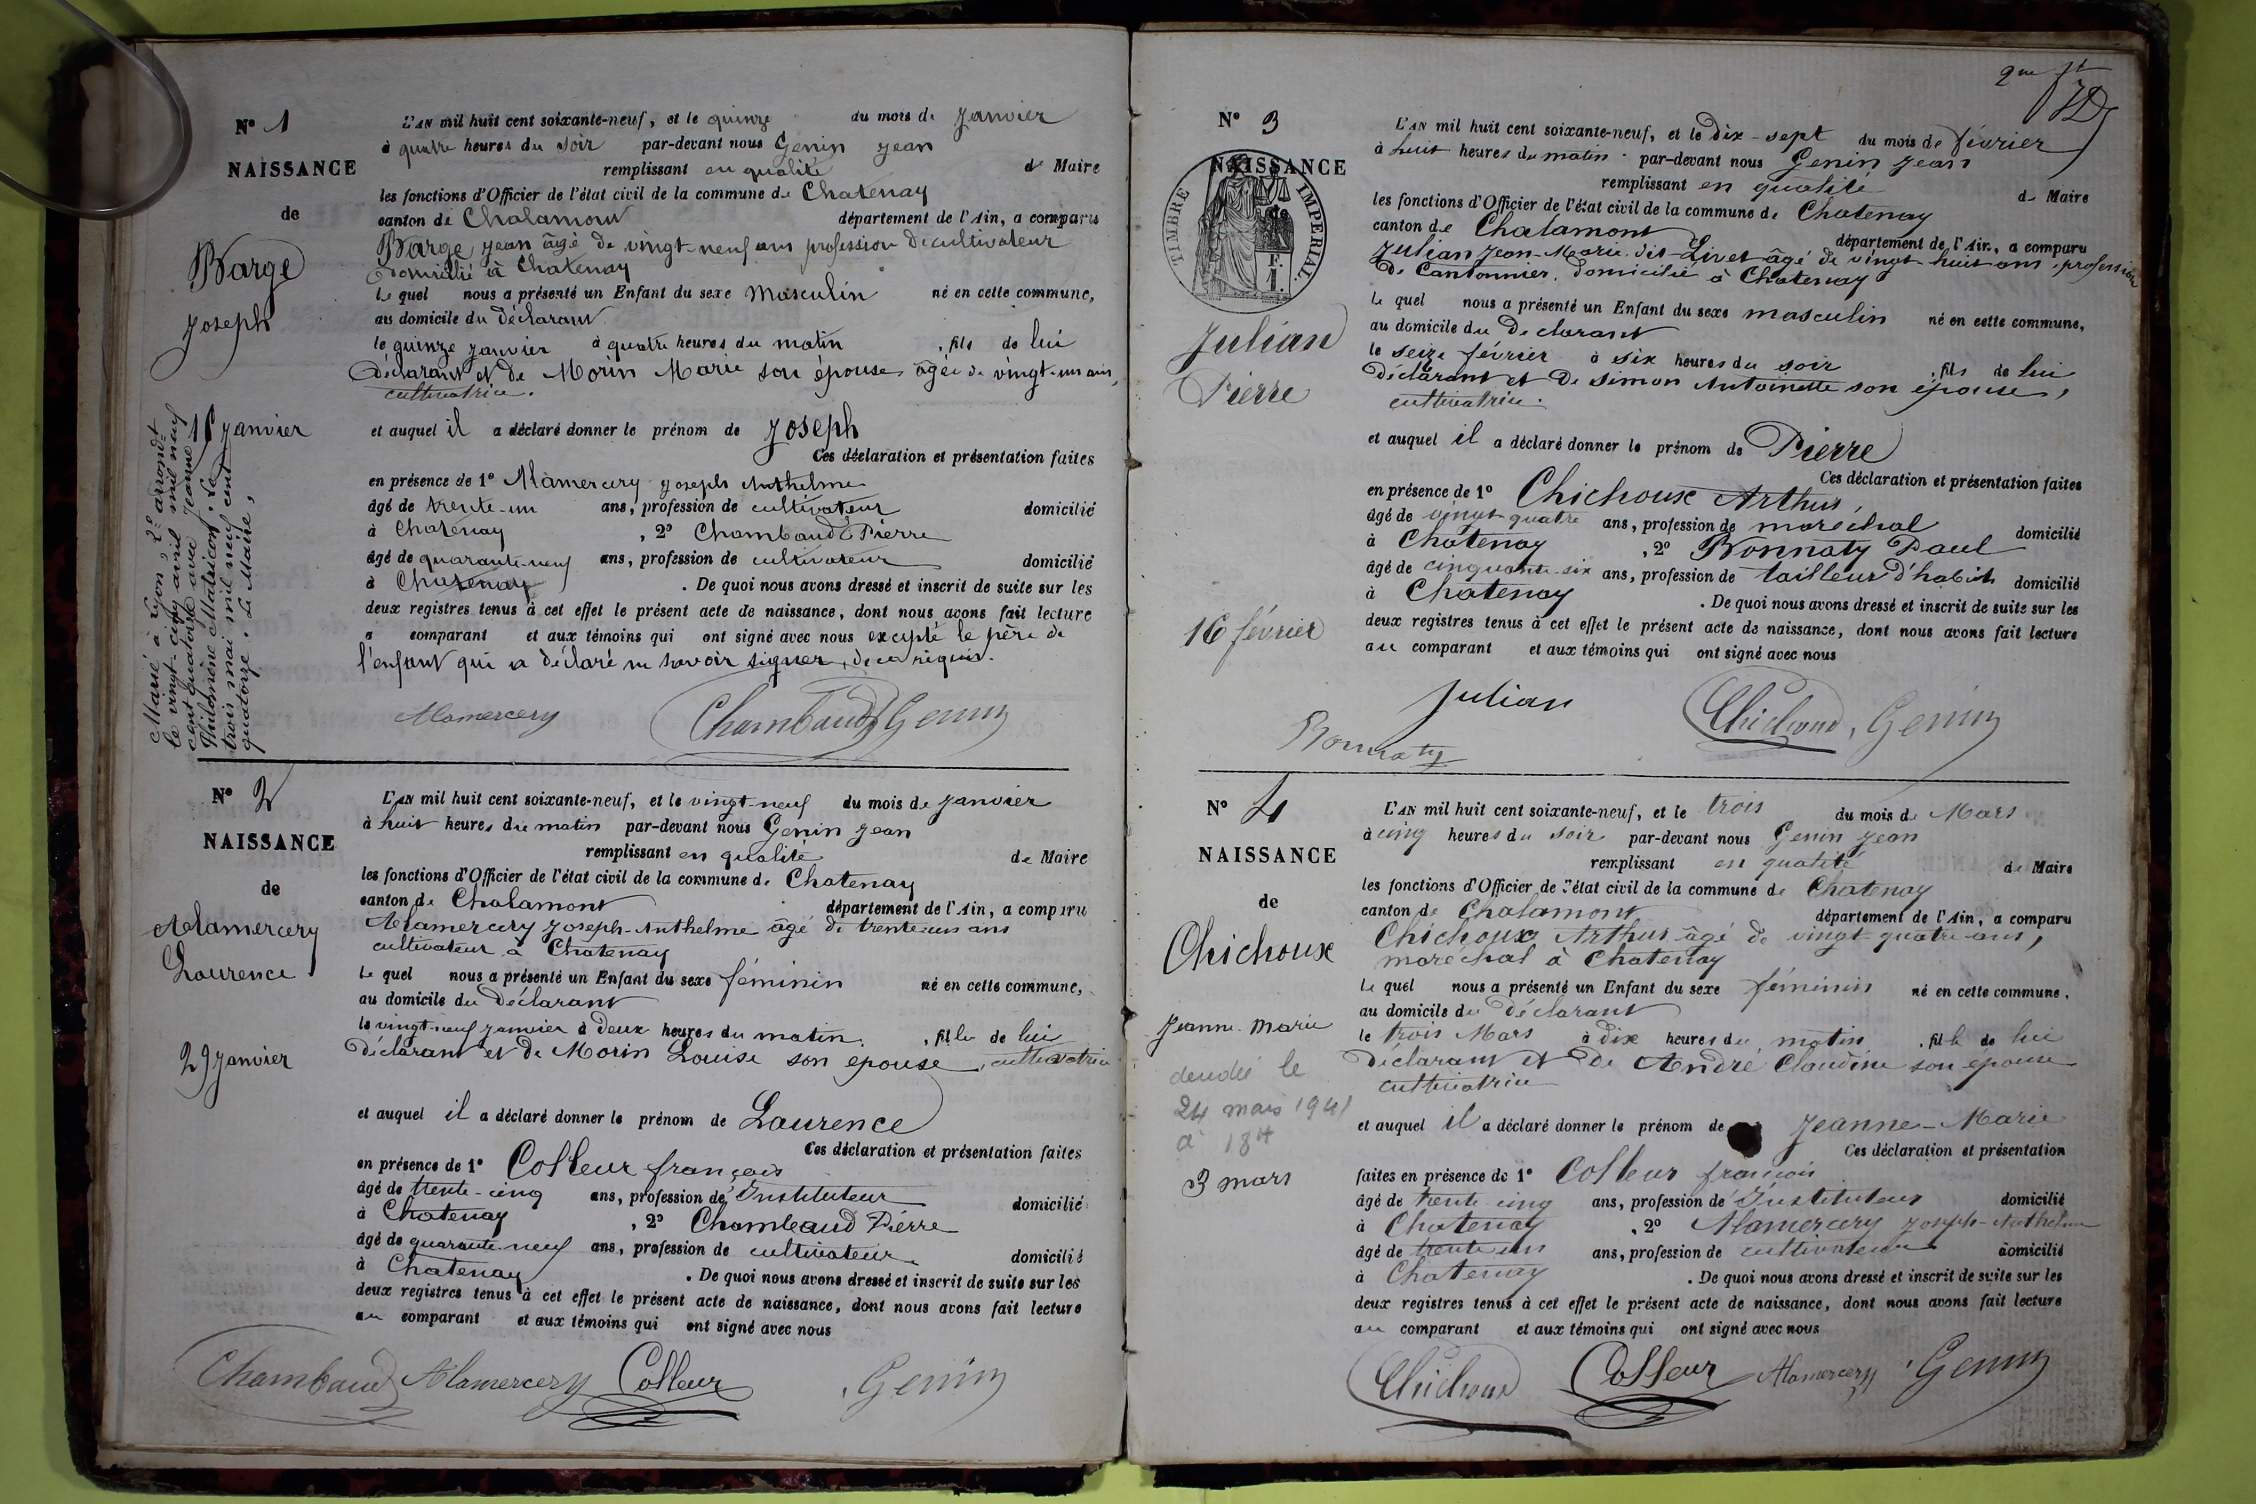 N° 1
NAISSANCE
de
Barge
Joseph
15 janvier
Marié à Lyon, 2e arrondt
le vingt-cinq avril mil neuf
cent quatorze avec Jeanne
Philomène Matricon. Le
trois mai mil neuf cent
quatorze. Le Maire,
L'AN mil huit cent soixante-neuf, et le quinze du mois de Janvier
à quatre heures du soir par-devant nous Genin Jean
remplissant en qualité de Maire
les fonctions d'Officier de l'état civil de la commune de Chatenay
canton de Chalamont département de l'Ain, a comparu
Barge Jean âgé de vingt-neuf ans profession de cultivateur
domicilié à Chatenay
Le quel nous a présenté un Enfant du sexe Masculin né en cette commune,
au domicile du Déclarant
le quinze janvier à quatre heures du matin, fils de lui
déclarant et de Morin Marie son épouse âgée de vingt-un ans,
cultivatrice.
et auquel il a déclaré donner le prénom de Joseph
Ces déclaration et présentation faites
en présence de 1° Alamercery Joseph Anthelme
âgé de trente-un ans, profession de cultivateur domicilié
à Chatenay, 2° Chambaud Pierre
âgé de quarante-neuf ans, profession de cultivateur domicilié
à Chatenay. De quoi nous avons dressé et inscrit de suite sur les
deux registres tenus à cet effet le présent acte de naissance, dont nous avons fait lecture
a comparant et aux témoins qui ont signé avec nous excepté le père de
l'enfant qui a déclaré ne savoir signer, de ce requis.
Alamercery Chambaud Genin
N° 2
NAISSANCE
de
Alamercery
Laurence
29 janvier
L'AN mil huit cent soixante-neuf, et le vingt-neuf du mois de janvier
à huit heures du matin par-devant nous Genin Jean
remplissant en qualité de Maire
les fonctions d'Officier de l'état civil de la commune de Chatenay
canton de Chalamont département de l'Ain, a comparu
Alamercery Joseph-Anthelme âgé de trente-un ans
cultivateur à Chatenay
Le quel nous a présenté un Enfant du sexe féminin né en cette commune,
au domicile du Déclarant
le vingt-neuf janvier à deux heures du matin, fille de lui
Déclarant et de Morin Louise son épouse, cultivatrice
et auquel il a déclaré donner le prénom de Laurence
Ces déclaration et présentation faites
en présence de 1° Colleur françois
âgé de trente-cinq ans, profession de Instituteur domicilié
à Chatenay, 2° Chambaud Pierre
âgé de quarante-neuf ans, profession de cultivateur domicilié
à Chatenay. De quoi nous avons dressé et inscrit de suite sur les
deux registres tenus à cet effet le présent acte de naissance, dont nous avons fait lecture
au comparant et aux témoins qui ont signé avec nous
Chambaud Alamercery Colleur Genin
N° 3
NAISSANCE
TIMBRE IMPERIAL.
F.
1.
Julian
Pierre
16 février
L'AN mil huit cent soixante-neuf, et le dix-sept du mois de février
à huit heures du matin par-devant nous Genin Jean
remplissant en qualité de Maire
les fonctions d'Officier de l'état civil de la commune de Chatenay
canton de Chalamont département de l'Ain, a comparu
Julian Jean-Marie dit Livet âgé de vingt huit ans, profession
de Cantonnier, domicilié à Chatenay
Le quel nous a présenté un Enfant du sexe masculin né en cette commune,
au domicile du Déclarant
le seize février à six heures du soir, fils de lui
Déclarant et de Simon Antoinette son épouse,
cultivatrice.
et auquel il a déclaré donner le prénom de Pierre
Ces déclaration et présentation faites
en présence de 1° Chichoux Arthus,
âgé de vingt quatre ans, profession de maréchal domicilié
à Chatenay, 2° Bonnaty Paul
âgé de cinquante-six ans, profession de tailleur d'habits domicilié
à Chatenay. De quoi nous avons dressé et inscrit de suite sur les
deux registres tenus à cet effet le présent acte de naissance, dont nous avons fait lecture
au comparant et aux témoins qui ont signé avec nous
Julian Chichoux, Genin
Bonnaty
N° 4
NAISSANCE
de
Chichoux
Jeanne-Marie
décédée le
24 mars 1941
à 18 H
3 mars
L'AN mil huit cent soixante-neuf, et le trois du mois de Mars
à cinq heures du soir par-devant nous Genin Jean
remplissant en qualité de Maire
les fonctions d'Officier de l'état civil de la commune de Chatenay
canton de Chalamont département de l'Ain, a comparu
Chichoux Arthus âgé de vingt-quatre ans,
maréchal à Chatenay
Le quel nous a présenté un Enfant du sexe féminin né en cette commune,
au domicile du Déclarant
le trois Mars à dix heures du matin, fille de lui
Déclarant et de André Claudine son épouse
cultivatrice
et auquel il a déclaré donner le prénom de Jeanne-Marie
Ces déclaration et présentation
faites en présence de 1° Colleur françois
âgé de trente-cinq ans, profession de Instituteur domicilié
à Chatenay, 2° Alamercery Joseph-Anthelme
âgé de trente-un ans, profession de cultivateur domicilié
à Chatenay. De quoi nous avons dressé et inscrit de suite sur les
deux registres tenus à cet effet le présent acte de naissance, dont nous avons fait lecture
au comparant et aux témoins qui ont signé avec nous
Chichoux Colleur Alamercery Genin